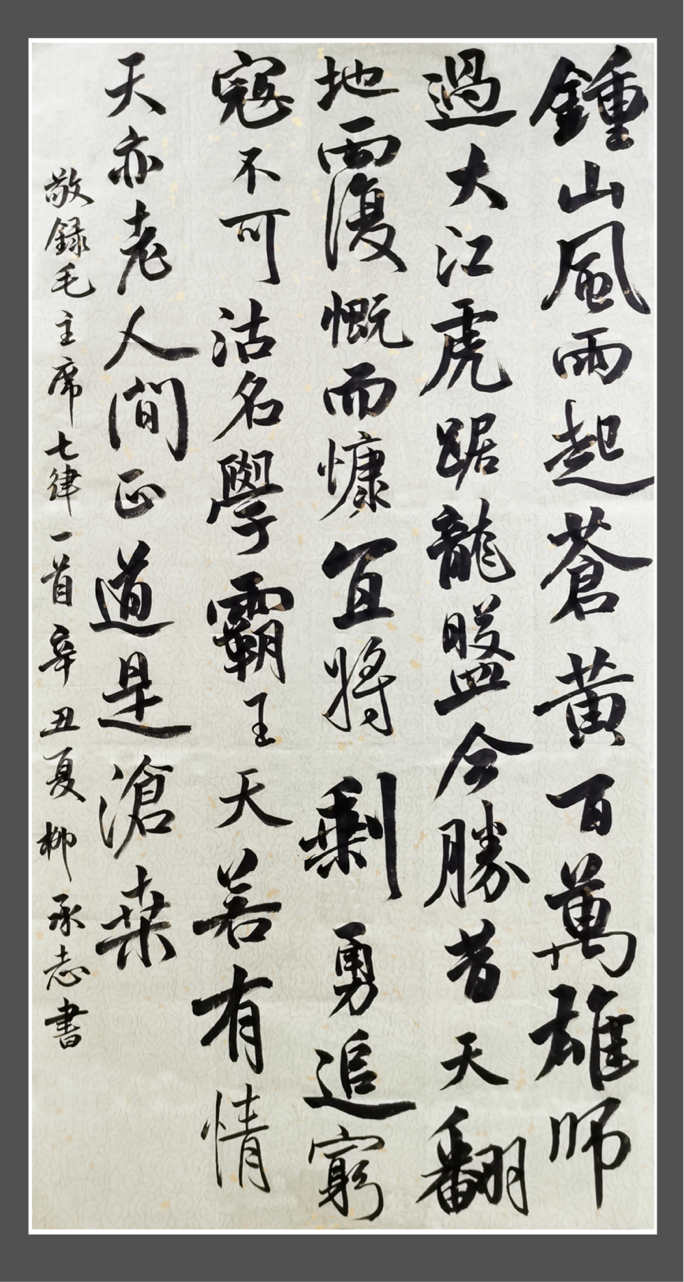 鍾山風雨起蒼黃百萬雄師
過大江虎踞龍盤今勝昔天翻
地覆慨而慷宜將剩勇追窮
寇不可沽名學霸王天若有情
天亦老人間正道是滄桑
敬錄毛主席七律一首辛丑夏柳承志書